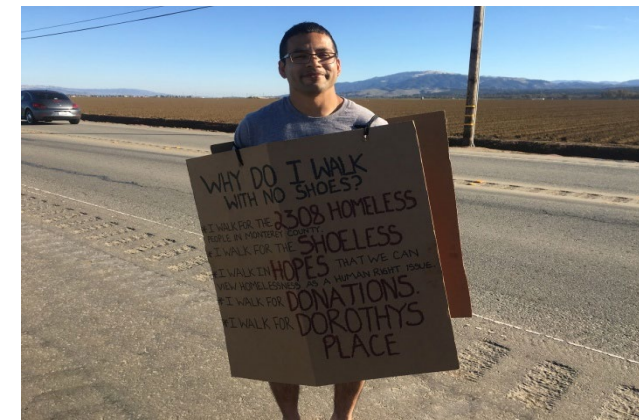 WHY DO I WALK
WITH NO SHOES?
* I WALK FOR THE 2308 HOMELESS
PEOPLE IN MONTEREY COUNTY.
* I WALK FOR THE SHOELESS
* I WALK IN HOPES THAT WE CAN
VIEW HOMELESSNESS AS A HUMAN RIGHT ISSUE.
* I WALK FOR DONATIONS.
* I WALK FOR DOROTHYS
PLACE